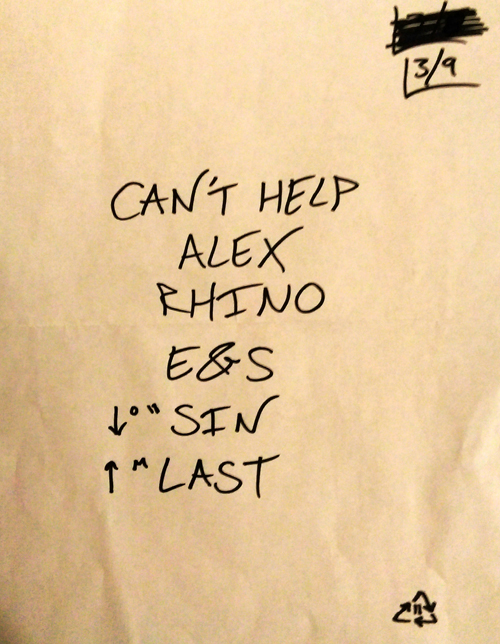 3/9
CAN'T HELP
ALEX
RHINO
E&S
↓°" SIN
↑ᴹ LAST